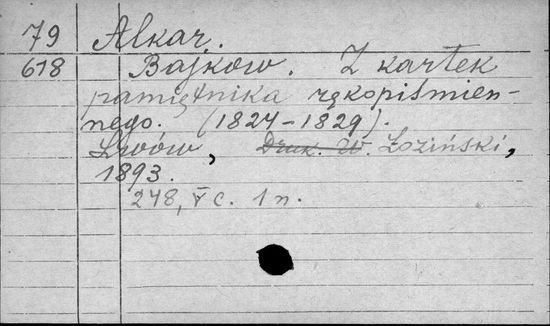 79 Alkar.
618 Bajkow. Z kartek
pamiętnika rękopiśmien-
nego. (1824-1829).
Lwów, Druk. W. Łoziński,
1893.
248, V c. 1 n.